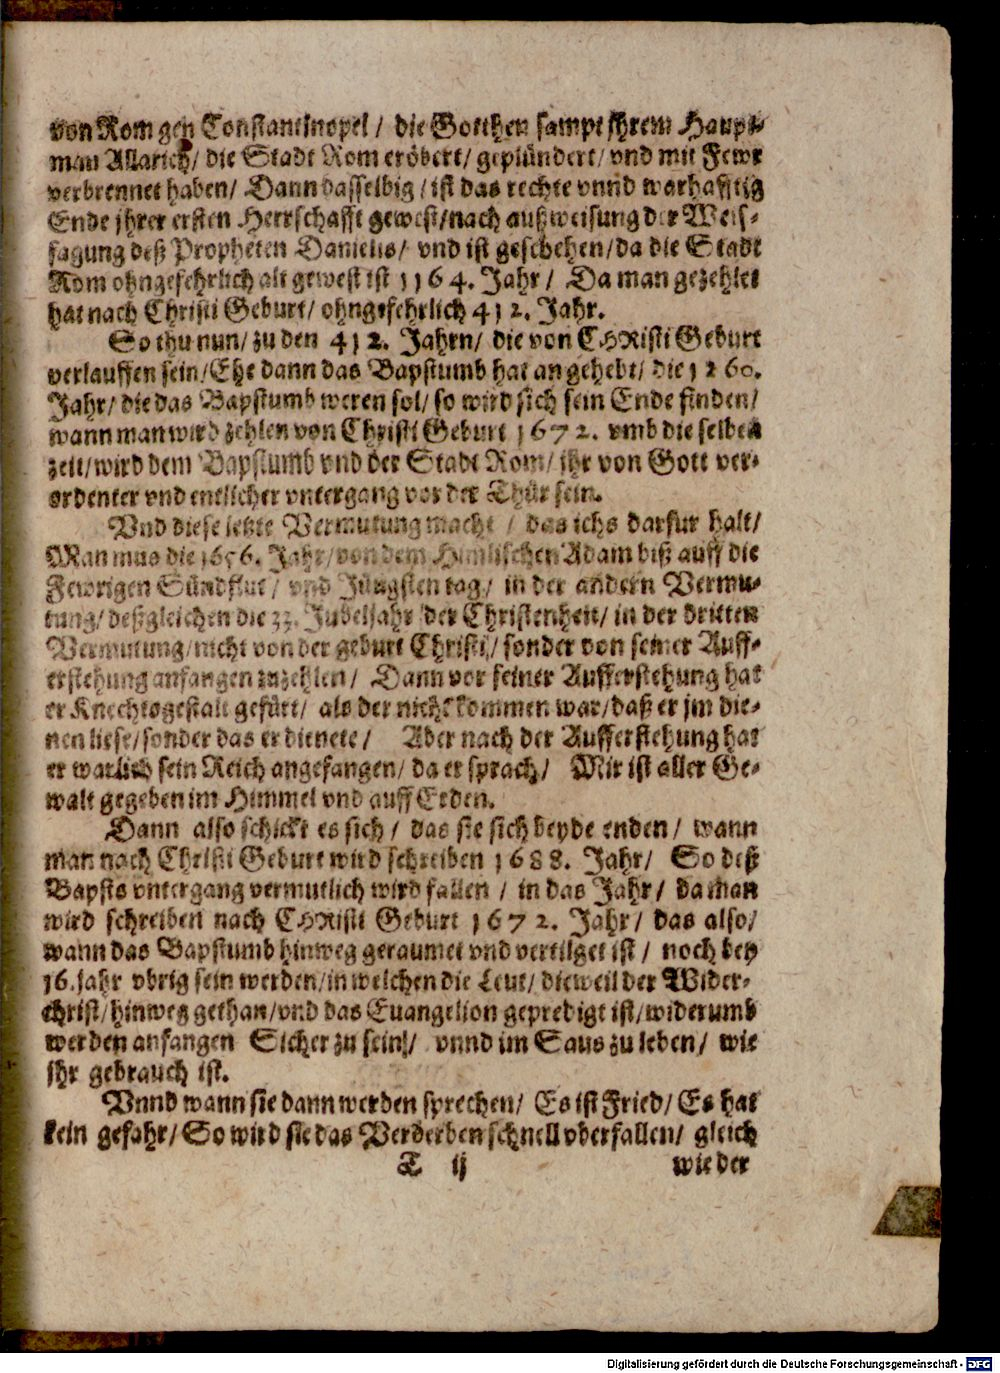 von Rom gen Constantinopel / die Gotthen sampt jhrem Haupt-
man Allarich / die Stadt Rom eröbert / geplündert / vnd mit Fewr
verbrennet haben / Dann dasselbig / ist das rechte vnnd warhafftig
Ende jhrer ersten Herrschafft gewest / nach außweisung der Weis-
sagung deß Propheten Danielis / vnd ist geschehen / da die Stadt
Rom ohngefehrlich alt gewest ist 1164. Jahr / Da man gezehlet
hat nach Christi Geburt / ohngefehrlich 412. Jahr.
So thu nun / zu den 412. Jahrn / die von CHRisti Geburt
verlauffen sein / Ehe dann das Bapstumb hat angehebt / die 1260.
Jahr / die das Bapstumb weren sol / so wird sich sein Ende finden /
wann man wird zehlen von Christi Geburt 1672. vmb die selben
zeit / wird dem Bapstumb vnd der Stadt Rom / jhr von Gott ver-
ordenter vnd entlicher vntergang vor der Thür sein.
Vnd diese letzte Vermutung macht / das ichs darfur halt /
Man mus die 1656. Jahr / von dem Himlischen Adam biß auff die
Fewrigen Sündflut / vnd Jüngsten tag / in der andern Vermu-
tung / deßgleichen die 33. Jubeljahr der Christenheit / in der dritten
Vermutung / nicht von der geburt Christi / sonder von seiner Auff-
erstehung anfangen zuzehlen / Dann vor seiner Aufferstehung hat
er Knechtsgestalt gefürt / als der nicht kommen war / daß er jm die-
nen liese / sonder das er dienete / Aber nach der Aufferstehung hat
er warlich sein Reich angefangen / da er sprach / Mir ist aller Ge-
walt gegeben im Himmel vnd auff Erden.
Dann also schickt es sich / das sie sich beyde enden / wann
man nach Christi Geburt wird schreiben 1688. Jahr / So deß
Bapsts vntergang vermutlich wird fallen / in das Jahr / da man
wird schreiben nach CHRisti Geburt 1672. Jahr / das also /
wann das Bapstumb hinweg geraumet vnd vertilget ist / noch bey
16. jahr vbrig sein werden / in welchen die Leut / dieweil der Wider-
christ / hinweg gethan / vnd das Euangelion gepredigt ist / widerumb
werden anfangen Sicher zu sein / vnnd im Saus zu leben / wie
jhr gebrauch ist.
Vnnd wann sie dann werden sprechen / Es ist Fried / Es hat
kein gefahr / So wird sie das Verderben schnell vberfallen / gleich
T ij wie der
Digitalisierung gefördert durch die Deutsche Forschungsgemeinschaft - DFG